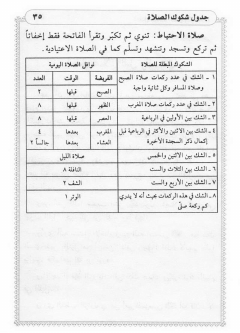 جدول شكوك الصلاة ٣٥
صلاة الاحتياط: تنوي ثم تكبّر وتقرأ الفاتحة فقط إخفاتاً
ثم تركع وتسجد وتتشهد وتسلّم كما في الصلاة الاعتيادية.
الشكوك المبطلة للصلاة
١ - الشك في عدد ركعات صلاة الصبح
وصلاة المسافر وكل ثنائية واجبة
٢ - الشك في عدد ركعات صلاة المغرب
٣ - الشك بين الأولين في الرباعية
٤ - الشك بين الاثنين والأكثر في الرباعية قبل
إكمال ذكر السجدة الأخيرة
٥ - الشك بين الاثنين والخمس
٦ - الشك بين الثلاث والست
٧ - الشك بين الأربع والست
٨ - الشك في هذه الركعات بحيث أنه لا يدري
كم ركعة صلّى
نوافل الصلاة اليومية
الفريضة الوقت العدد
الصبح قبلها ٢
الظهر قبلها ٨
العصر قبلها ٨
المغرب بعدها ٤
العشاء بعدها جالساً ٢
صلاة الليل
النافلة ٨
الشفع ٢
الوتر ١